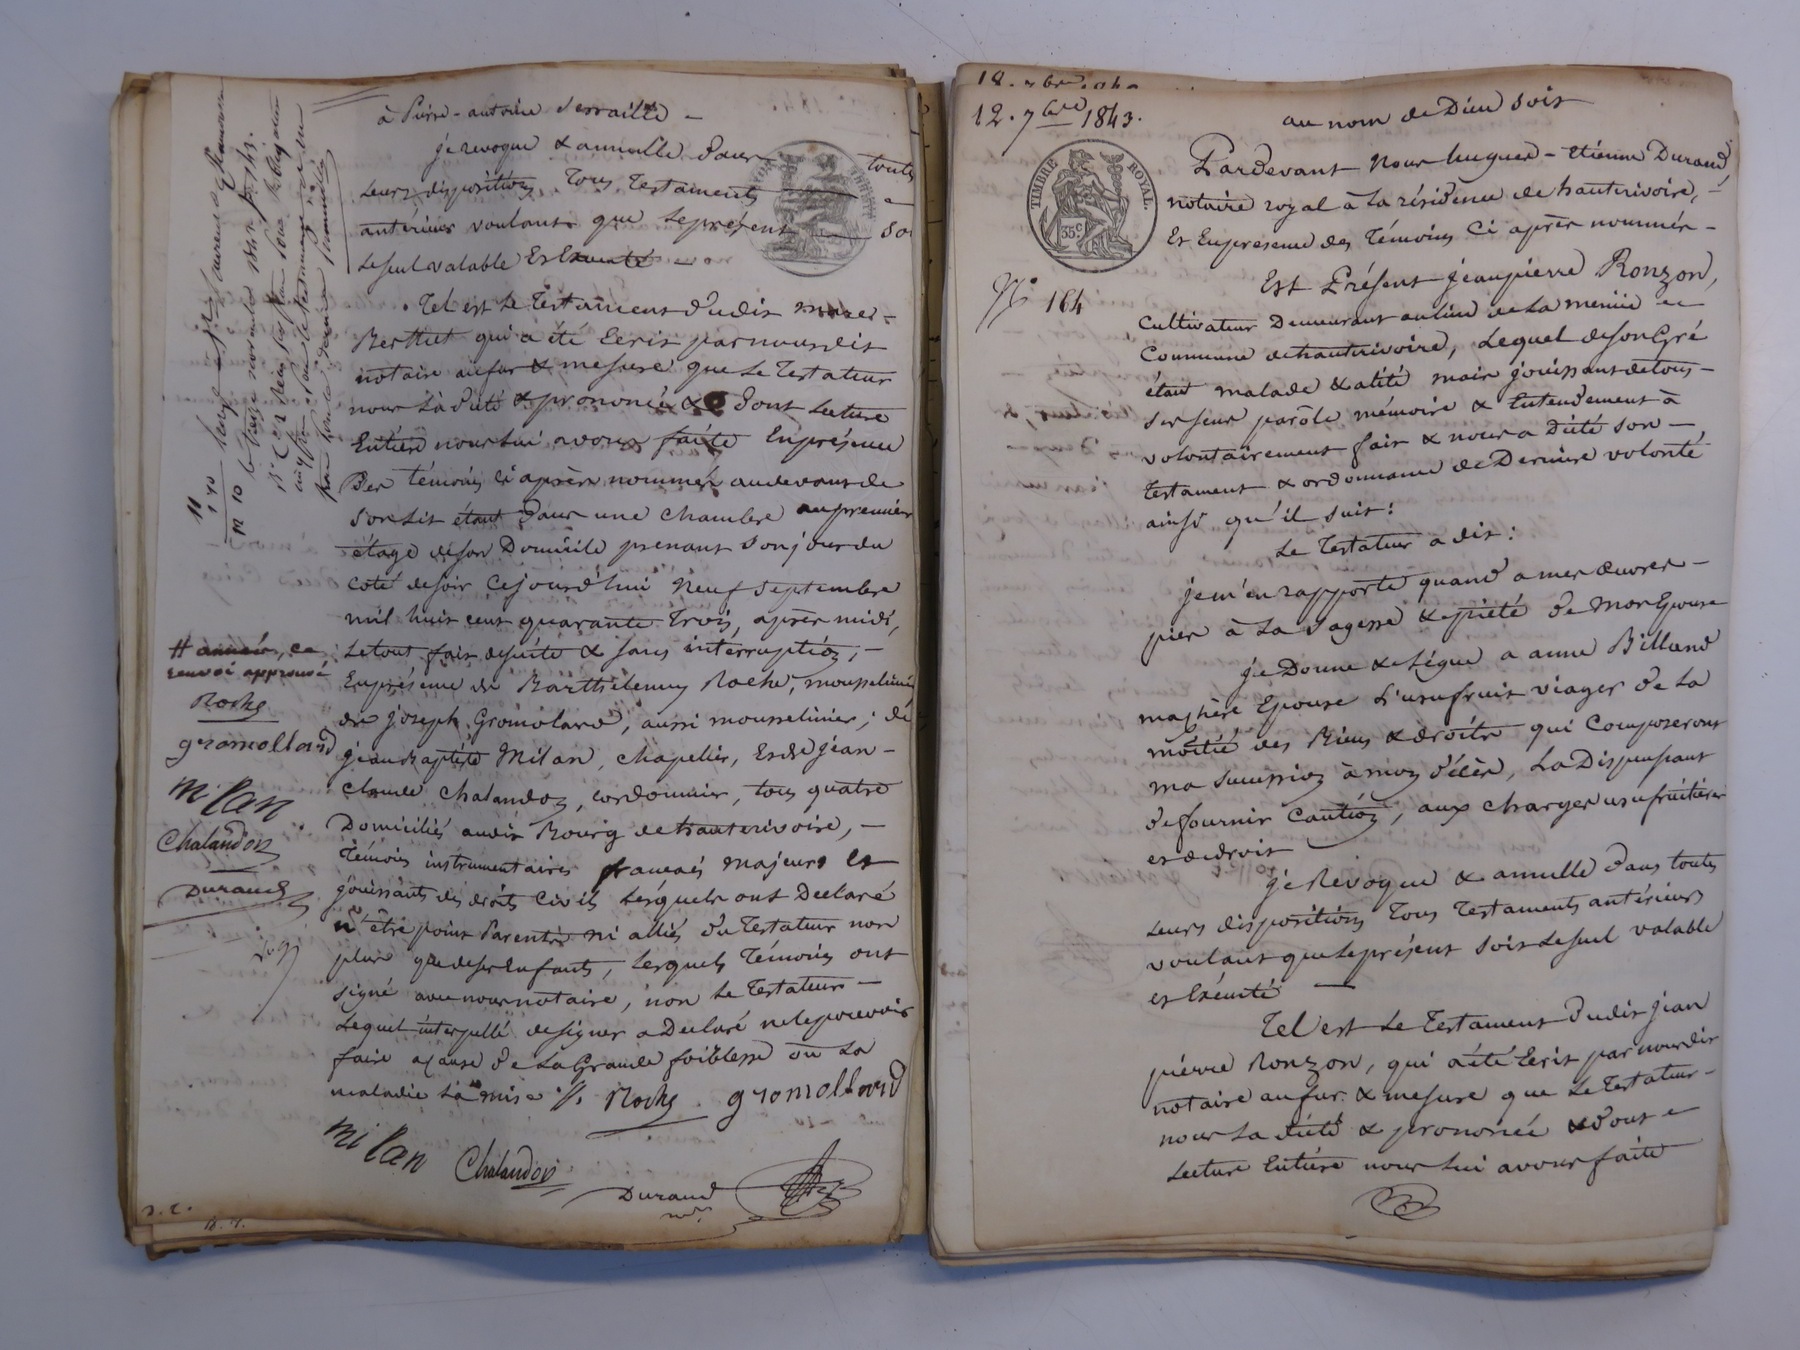 à Pierre-antoine Serraille –
je revoque & annulle dans toutes
leurs dispositions tous Testaments
antérieurs voulant que le présent so
le seul valable Et Exécuté –
Tel est le Testament dudit
Berthet qui a été Ecrit par nous dit
notaire au fur & mesure que le Testateur
nous l'a dicté & prononcé & dont Lecture
Entière nous lui avons faite En présence
Des témoins ci après nommés au devant de
son lit étant dans une chambre au premier
étage de son Domicile prenant son jour du
coté de soir Cejourd'hui Neuf Septembre
mil huit cent quarante Trois, après midi,
Le tout fait de suite & sans interruption, –
En présence de Barthelemy Roche, mousselinier
de joseph Gromolard, aussi mousselinier; de
jean Baptiste Milan, chapelier, Et de jean –
claude Chalandon, cordonnier, tous quatre
Domiciliés audit Bourg de hauterivoire, –
Témoins instrumentaires francais majeurs Et
jouissants des droits Civils Lesquels ont Déclaré
n'être point Parents ni alliés du Testateur non
plus que de ses Enfants, Lesquels Témoins ont
signé avec nous notaire, non le Testateur –
Lequel interpellé de signer a Déclaré ne le pouvoir
faire a cause de la Grande foiblesse où la
maladie l'a mis Roche gromollard
milan Chalandon
Durand
nre
renvoi approuvé
Roche
gromollard
milan
Chalandon
Durand
12. 7bre 1843.
au nom de Dieu soit
TIMBRE ROYAL.
35 c
Pardevant Nous hugues-etienne Durand,
notaire royal à la résidence de hauterivoire, –
Et En présence des Témoins Ci après nommés –
No 164
Est Présent jean pierre Ronzon,
Cultivateur Demeurant au lieu de la
Commune de hauterivoire, Lequel de son Gré
étant malade & alité mais jouissant de tous –
ses sens parole mémoire & Entendement à
volontairement fait & nous a Dicté son –
Testament & ordonnance de Dernière volonté
ainsi qu'il suit:
Le Testateur a dit:
je m'en rapporte quand a mes œuvres –
pies à la Sagesse & piété de mon Epouse
je Donne & Légue a anne Billand
ma chère Epouse L'usufruit viager de la
moitié des Biens & droits qui Composeront
ma succession à mon décès, La Dispensant
de fournir Caution, aux charges usufruitières
et de droit
je Révoque & annulle dans toutes
Leurs dispositions Tous Testaments antérieurs
voulant que le présent soit le seul valable
et Exécuté –
Tel est le Testament dudit jean
pierre Ronzon, qui a été Ecrit par nous dit
notaire au fur & mesure que le Testateur –
nous la dicté & prononcé & dont
Lecture Entière nous lui avons faite